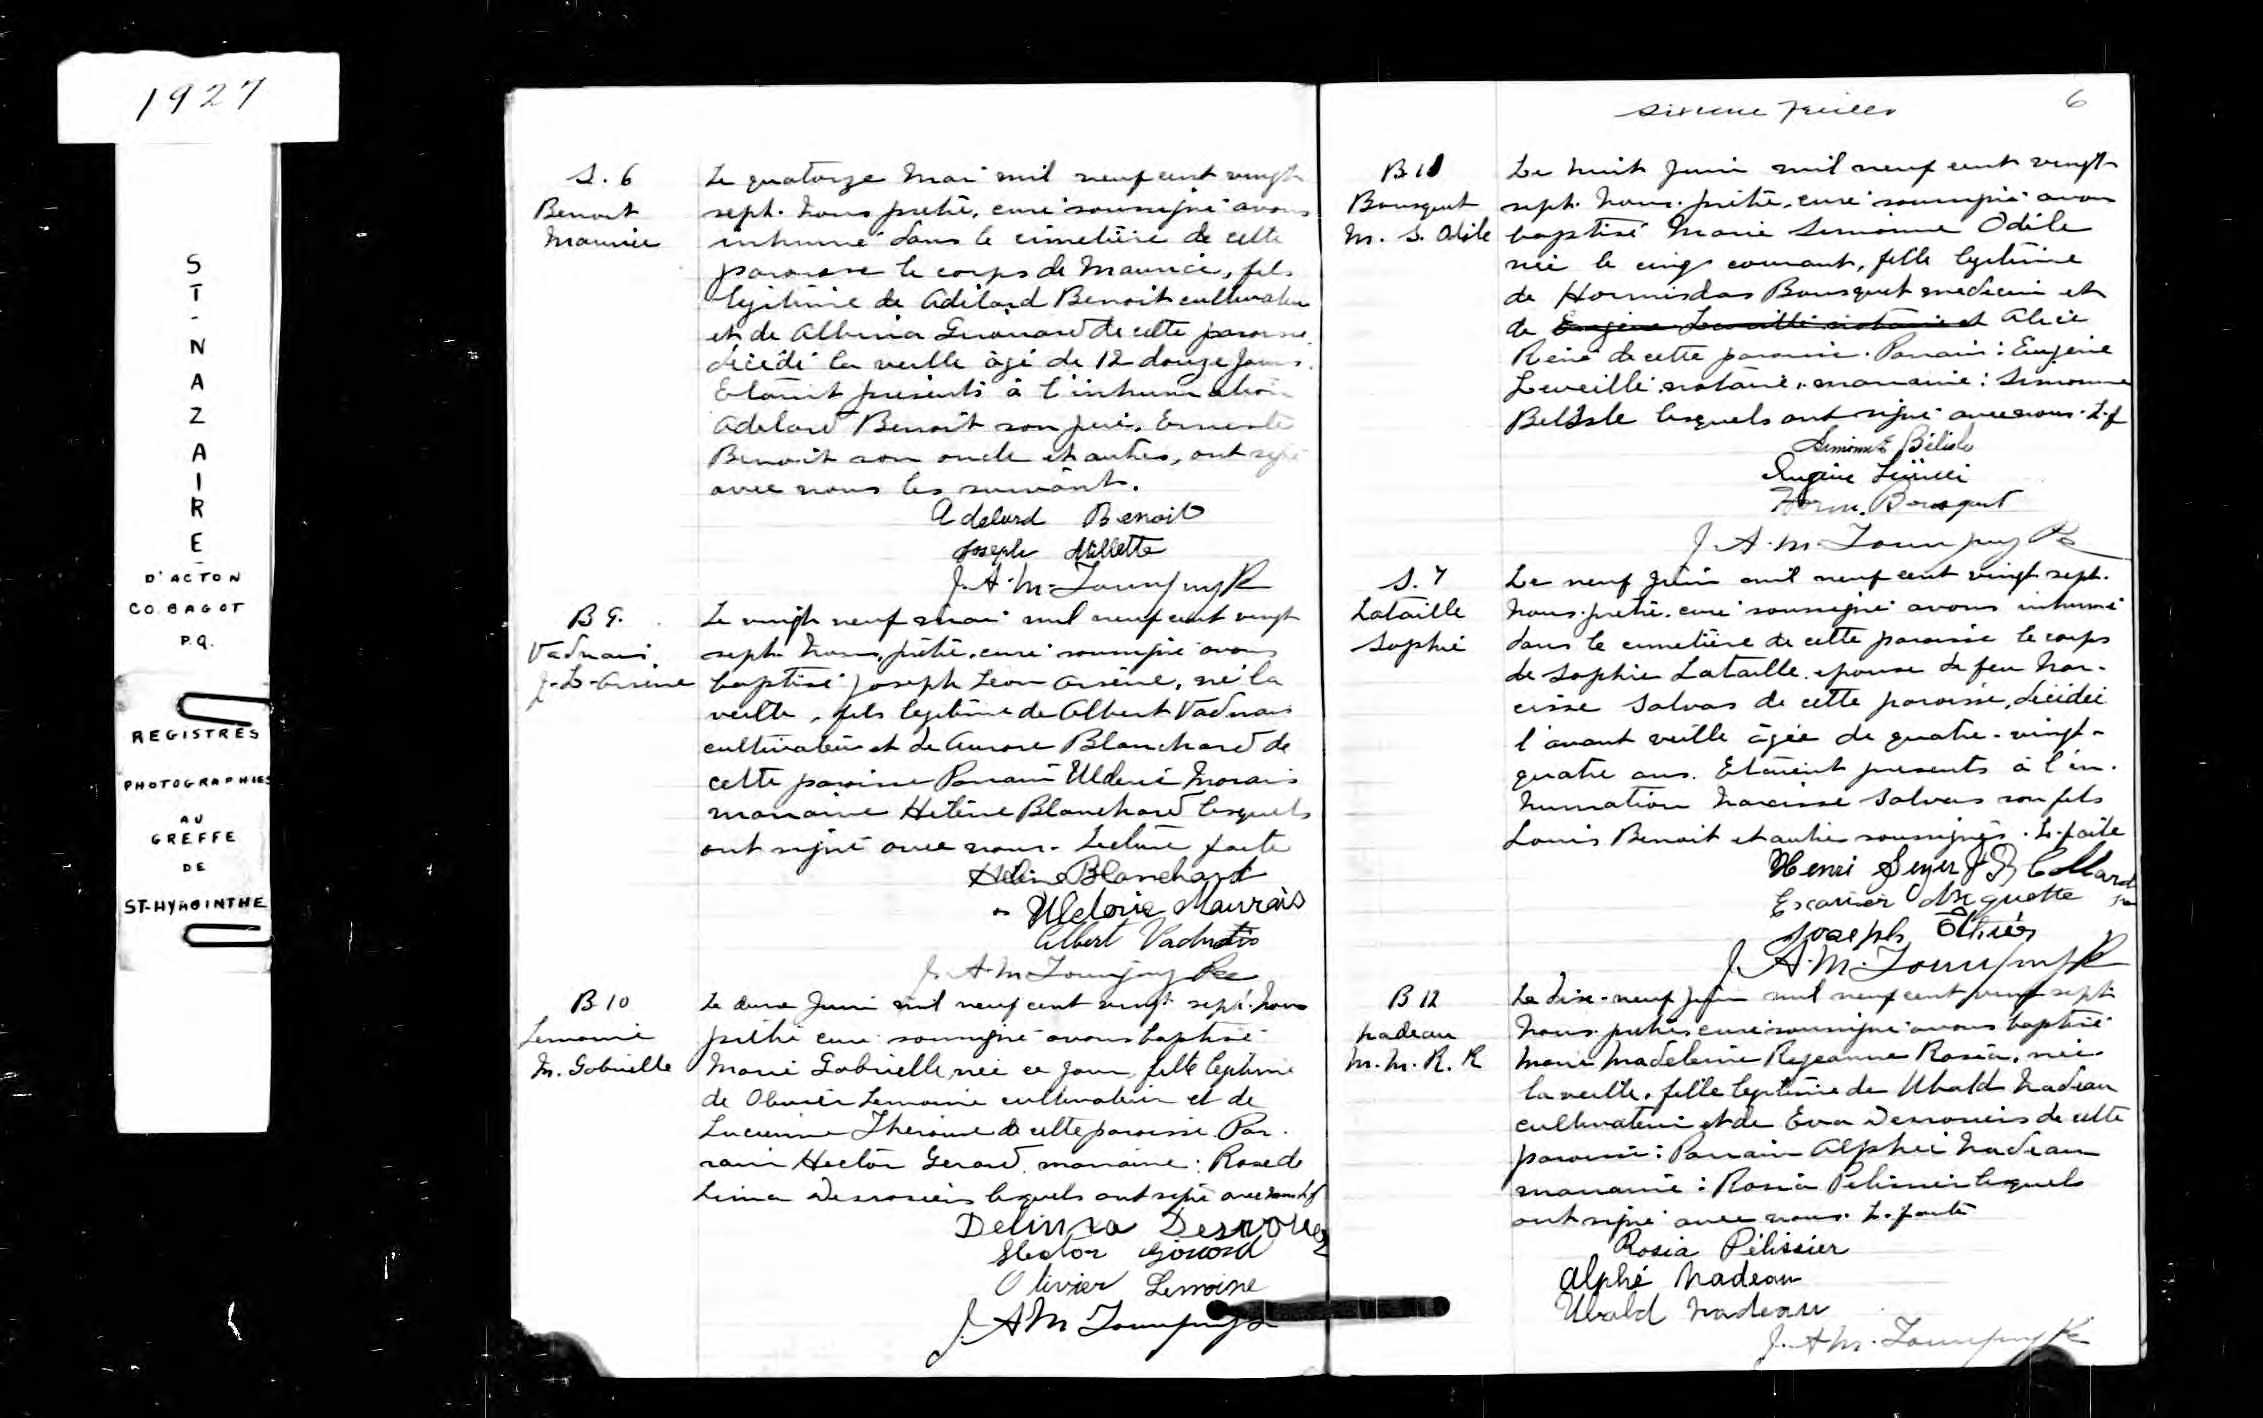 1927
ST-NAZAIRE
D'ACTON
CO. BAGOT
P.Q.
REGISTRES
PHOTOGRAPHIES
AU
GREFFE
DE
ST-HYACINTHE
S. 6
Benoit
Maurice
Le quatorze Mai mil neuf cent vingt
sept. Nous prêtre, curé soussigné avons
inhumé dans le cimetière de cette
paroisse le corps de Maurice, fils
légitime de Adélard Benoit cultivateur
et de Albina de cette paroisse
décédé la veille âgé de 12 douze jours.
Etaient présents à l'inhumation
Adelard Benoit son père, Ernest
Benoit son oncle et autres, ont signé
avec nous les suivants.
Adelard Benoit
Joseph Millette
J. A. M.
B 9.
Vadnais
J-L-Arsène
Le vingt neuf mai mil neuf cent vingt
sept. Nous, prêtre, curé soussigné avons
baptisé Joseph Léon Arsène, né la
veille, fils légitime de Albert Vadnais
cultivateur et de Aurore Blanchard de
cette paroisse Parrain
marraine Hélène Blanchard lesquels
ont signé avec nous. Lecture faite
Hélène Blanchard
Albert Vadnais
J. A. M.
B 10
Lemoine
M. Gabrielle
Le deux Juin mil neuf cent vingt sept. Nous
prêtre curé soussigné avons baptisé
Marie Gabrielle, née ce jour, fille légitime
de Olivier Lemoine cultivateur et de
Lucienne de cette paroisse. Par-
rain Hector marraine : Rose de
Lima Desrosiers lesquels ont signé avec nous L.f
Delima
Hector
Olivier Lemoine
J. A M
sixième feuillet
6
B 11
Bousquet
M. S. Odile
Le huit Juin mil neuf cent vingt
sept. Nous prêtre, curé soussigné avons
baptisé Marie Simonne Odile
née le cinq courant, fille légitime
de Hormisdas Bousquet médecin et
de Eugène Leveillé notaire et Alice
René de cette paroisse. Parrain : Eugène
Leveillé notaire, marraine : Simonne
Bélisle lesquels ont signé avec nous. L.f
Simonne Bélisle
Eugène
Horm. Bousquet
J. A. M.
S. 7
Lataille
Sophie
Le neuf Juin mil neuf cent vingt sept.
Nous prêtre, curé soussigné avons inhumé
dans le cimetière de cette paroisse le corps
de Sophie Lataille, épouse de feu Nar-
cisse Salvas de cette paroisse, décédée
l'avant veille âgée de quatre-vingt-
quatre ans. Etaient présents à l'in-
humation Narcisse Salvas son fils
Louis Benoit et autres soussignés. L. faite
Henri
Joseph
J. A. M.
B 12
Nadeau
M. M. R. R
Le dix-neuf juin mil neuf cent vingt sept
Nous prêtre curé soussigné avons baptisé
Marie Madeleine Rejeanne Rosia, née
la veille, fille légitime de Ubald Nadeau
cultivateur et de Eva Desrosiers de cette
paroisse : Parrain Alphée Nadeau
marraine : Rosia Pélissier lesquels
ont signé avec nous. L. faite
Rosia Pélissier
Alphé Nadeau
Ubald Nadeau
J. A. M.